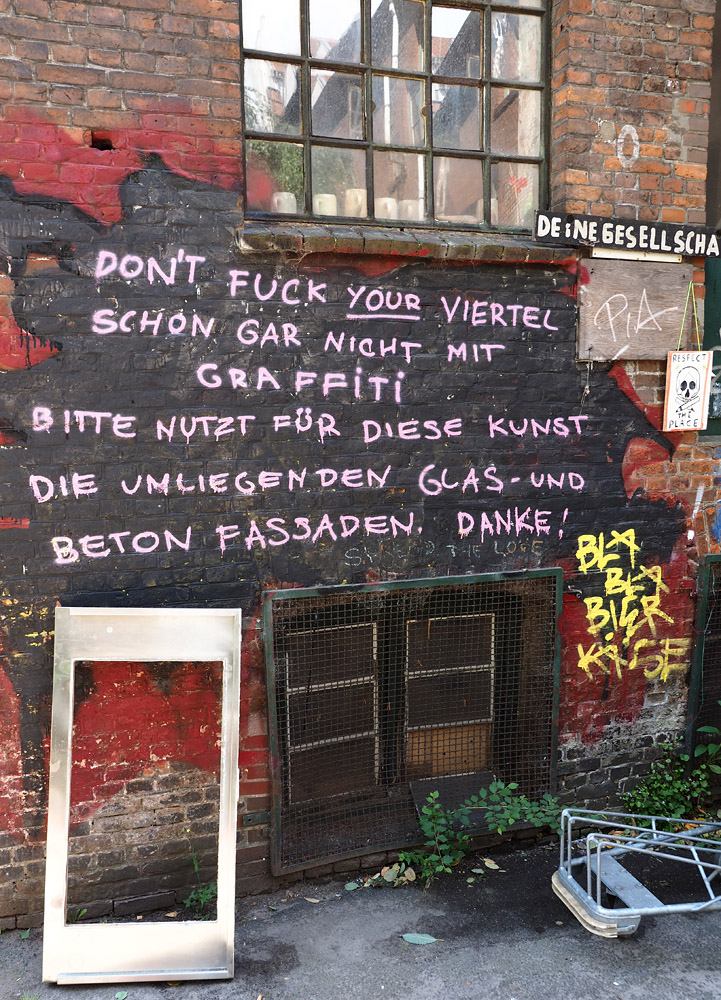 DEiNE GESELLSCHA
PiA
RESPECT
THE
PLACE
DON'T FUCK YOUR VIERTEL
SCHON GAR NICHT MIT
GRAFFiTi
BITTE NUTZT FÜR DIESE KUNST
DIE UMLIEGENDEN GLAS-UND
BETON FASSADEN. DANKE!
SPREAD THE LOVE
BLA
BLA
BIER
KÄSE